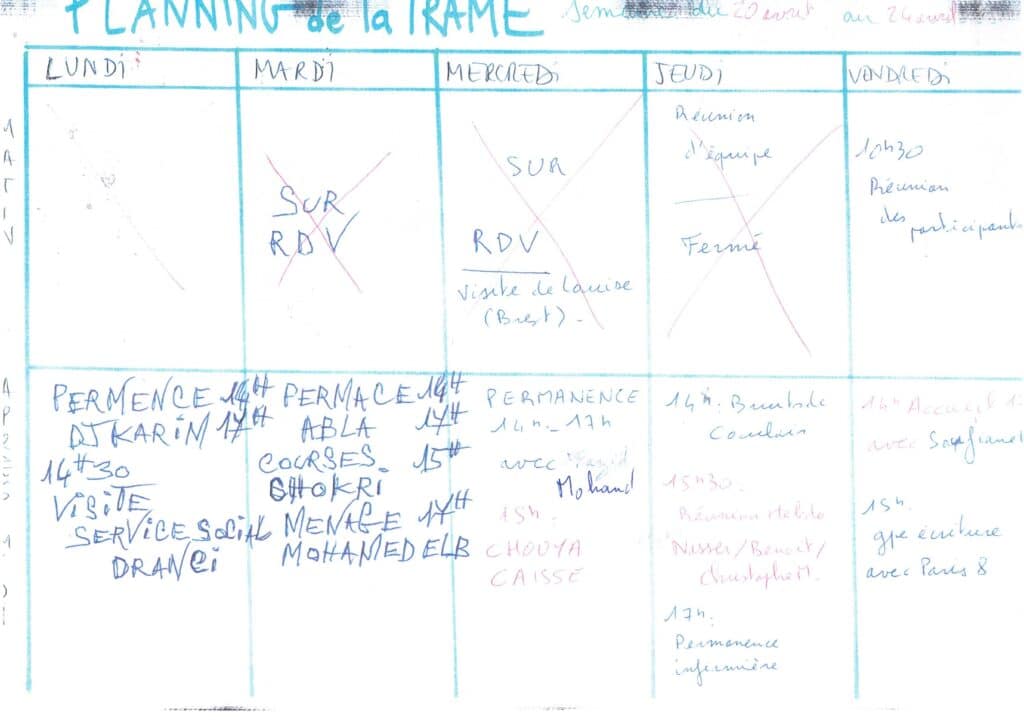 PLANNING de la TRAME semaine du 20 avril au 24 avril
LUNDI MARDI MERCREDI JEUDI VENDREDI
MATIN
SUR
RDV
SUR
RDV
Visite de Louise
(Brest).
Réunion
d'équipe
Fermé
10h30
Réunion
des
participants
PERMENCE 14H
DJKARIM 17H
14H30
VISITE
SERVICE SOCIAL
DRANCI
PERMACE 14H
ABLA 17H
COURSES. 15H
CHOKRI
MENAGE 17H
MOHAMED ELB
PERMANENCE
14h - 17h
avec
Mohand
15h.
CHOUYA
CAISSE
14h.
15h30.
Réunion Hebdo
Nasser/Benoit/
Christophe M.
17h.
Permanence
infirmière
14h Accueil
avec
15h.
gpe écriture
avec Paris 8